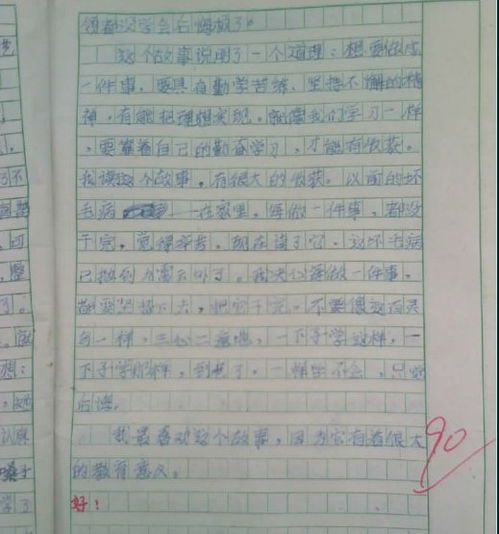 领都没学会后悔极了。
这个故事说明了一个道理：想要做成
一件事，要具有勤学苦练、坚持不懈的精
神，有能把理想实现。就像我们学习一样
，要靠着自己的勤奋学习，才能有收获。
我读这个故事，有很大的收获。以前的坏
毛病 一在家里，每做一件事，都没
干完，觉得辛苦。现在读了它，这坏毛病
已抛到九霄云外了。我决心每做一件事，
都要坚持下去，把它干完。不要像这百灵
鸟一样，三心二意地，一下子学这样，一
下子学那样，到老了，一样也不会，只好
后悔。
我最喜欢这个故事，因为它有着很大
的教育意义。
好！
90